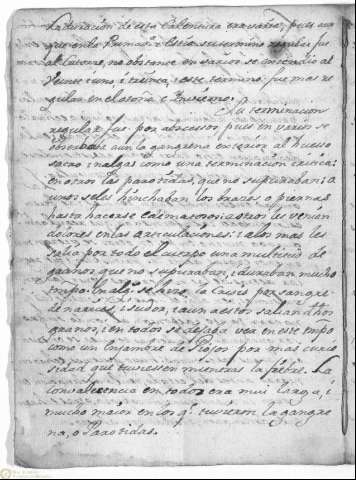 La duración de esta Calentura era varia, pues aun
que en la Primavera i Estío su termino regular fue
al catorce, no obstante en varios se extendió al
Veinte i uno, i treinta; este termino fue mas re
gular en el otoño, e Invierno.
La terminacion
regular fue por abscessos, pues en varios se
observaba aun la gangrena exterior al hueso
sacro, i nalgas como una terminacion critica;
en otros las parotidas, que no supuraban; a
unos se les hinchaban los brazos o piernas
hasta hacerse a otros les venian
dolores en las articulaciones; i a los mas les
salia por todo el cuerpo una multitud de
granos que no supuraban, i duraban mucho
tmpo. En alg.s se hizo la Crisis por sangre
de narices, i sudor, i aun a estos salian dhos
granos; i en todos se dejaba ver en este tmpo
como un Enxambre de Piojos por mas curio
sidad que tuviessen mientras la fiebre. La
convalecencia en todos era mui larga, i
mucho maior en los q.e tuvieron la gangre
na, o Parotidas.